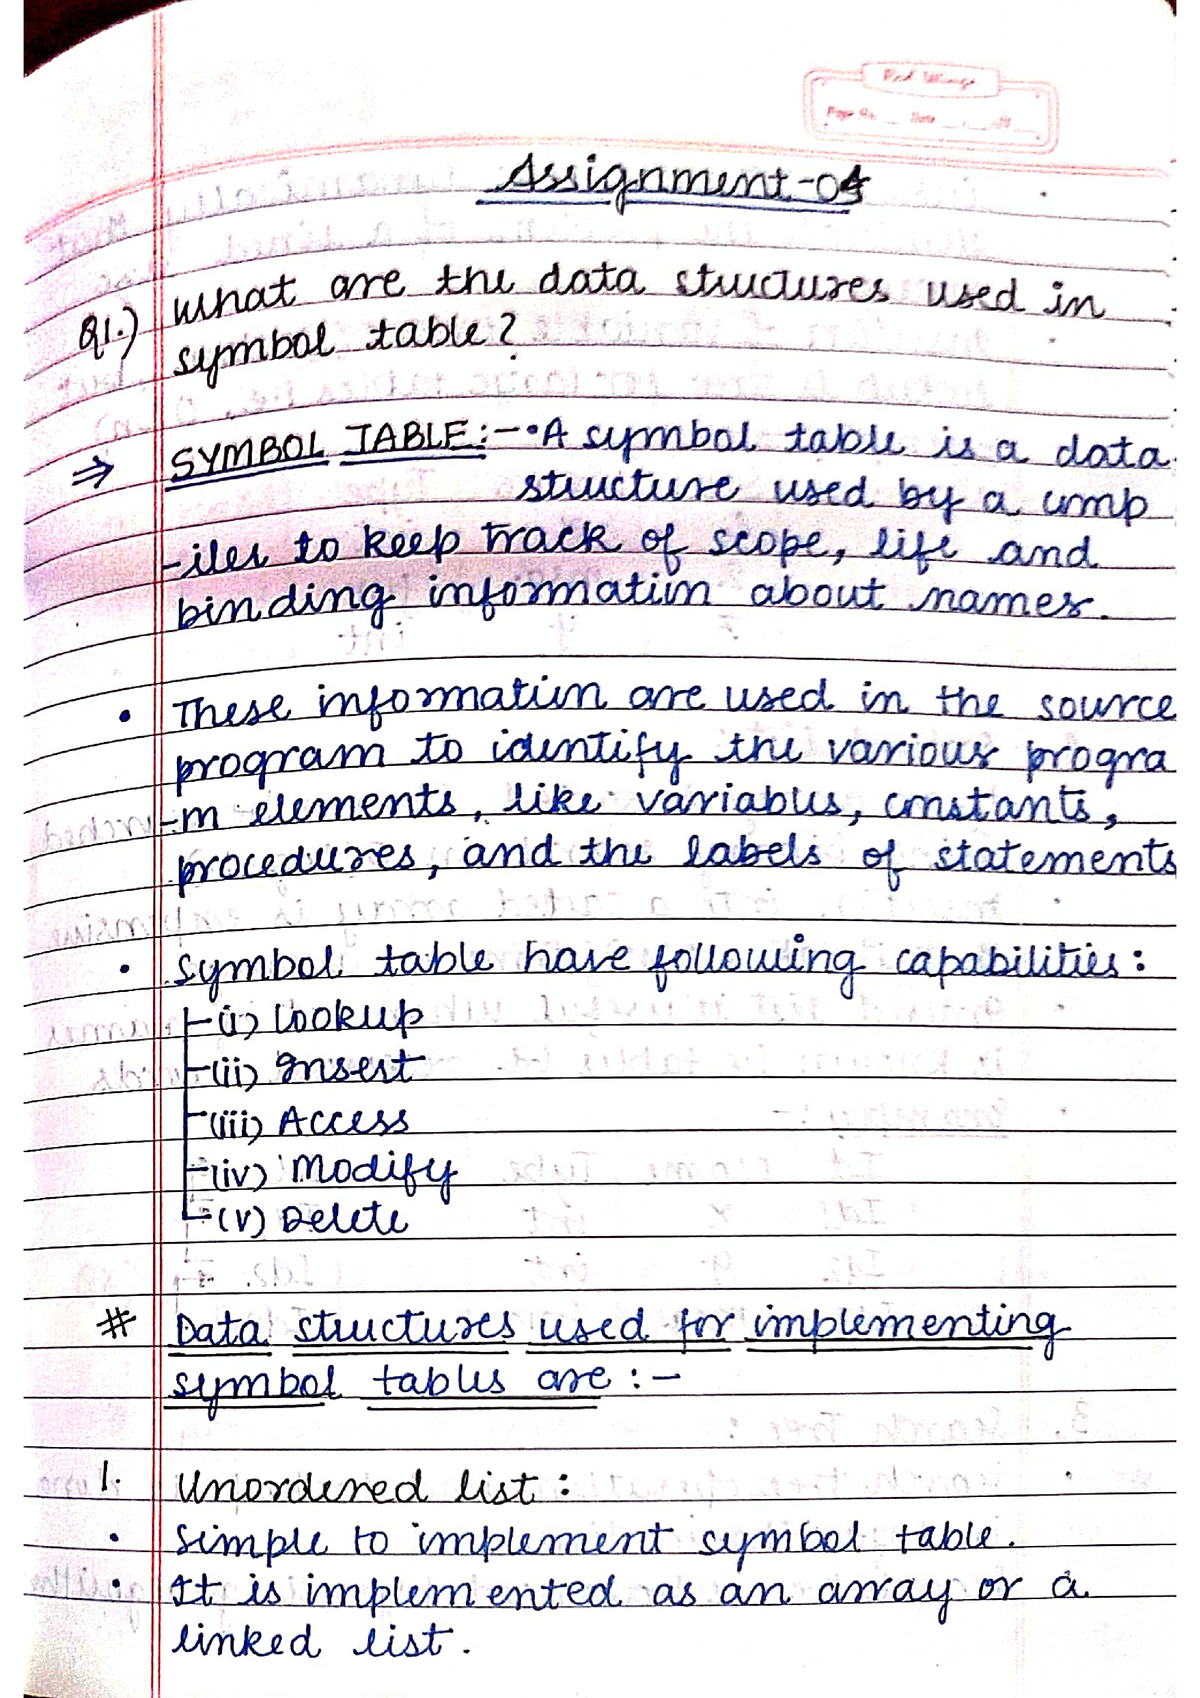 Assignment-04
Q1.) What are the data structures used in
symbol table?
⇒ SYMBOL TABLE:- • A symbol table is a data
structure used by a comp
-iler to keep track of scope, life and
binding information about names.
• These information are used in the source
program to identify the various progra
-m elements, like variables, constants,
procedures, and the labels of statements
• Symbol table have following capabilities:
(i) Lookup
(ii) Insert
(iii) Access
(iv) Modify
(v) Delete
# Data structures used for implementing
symbol tables are:-
1. Unordered list:
• Simple to implement symbol table.
• It is implemented as an array or a
linked list.